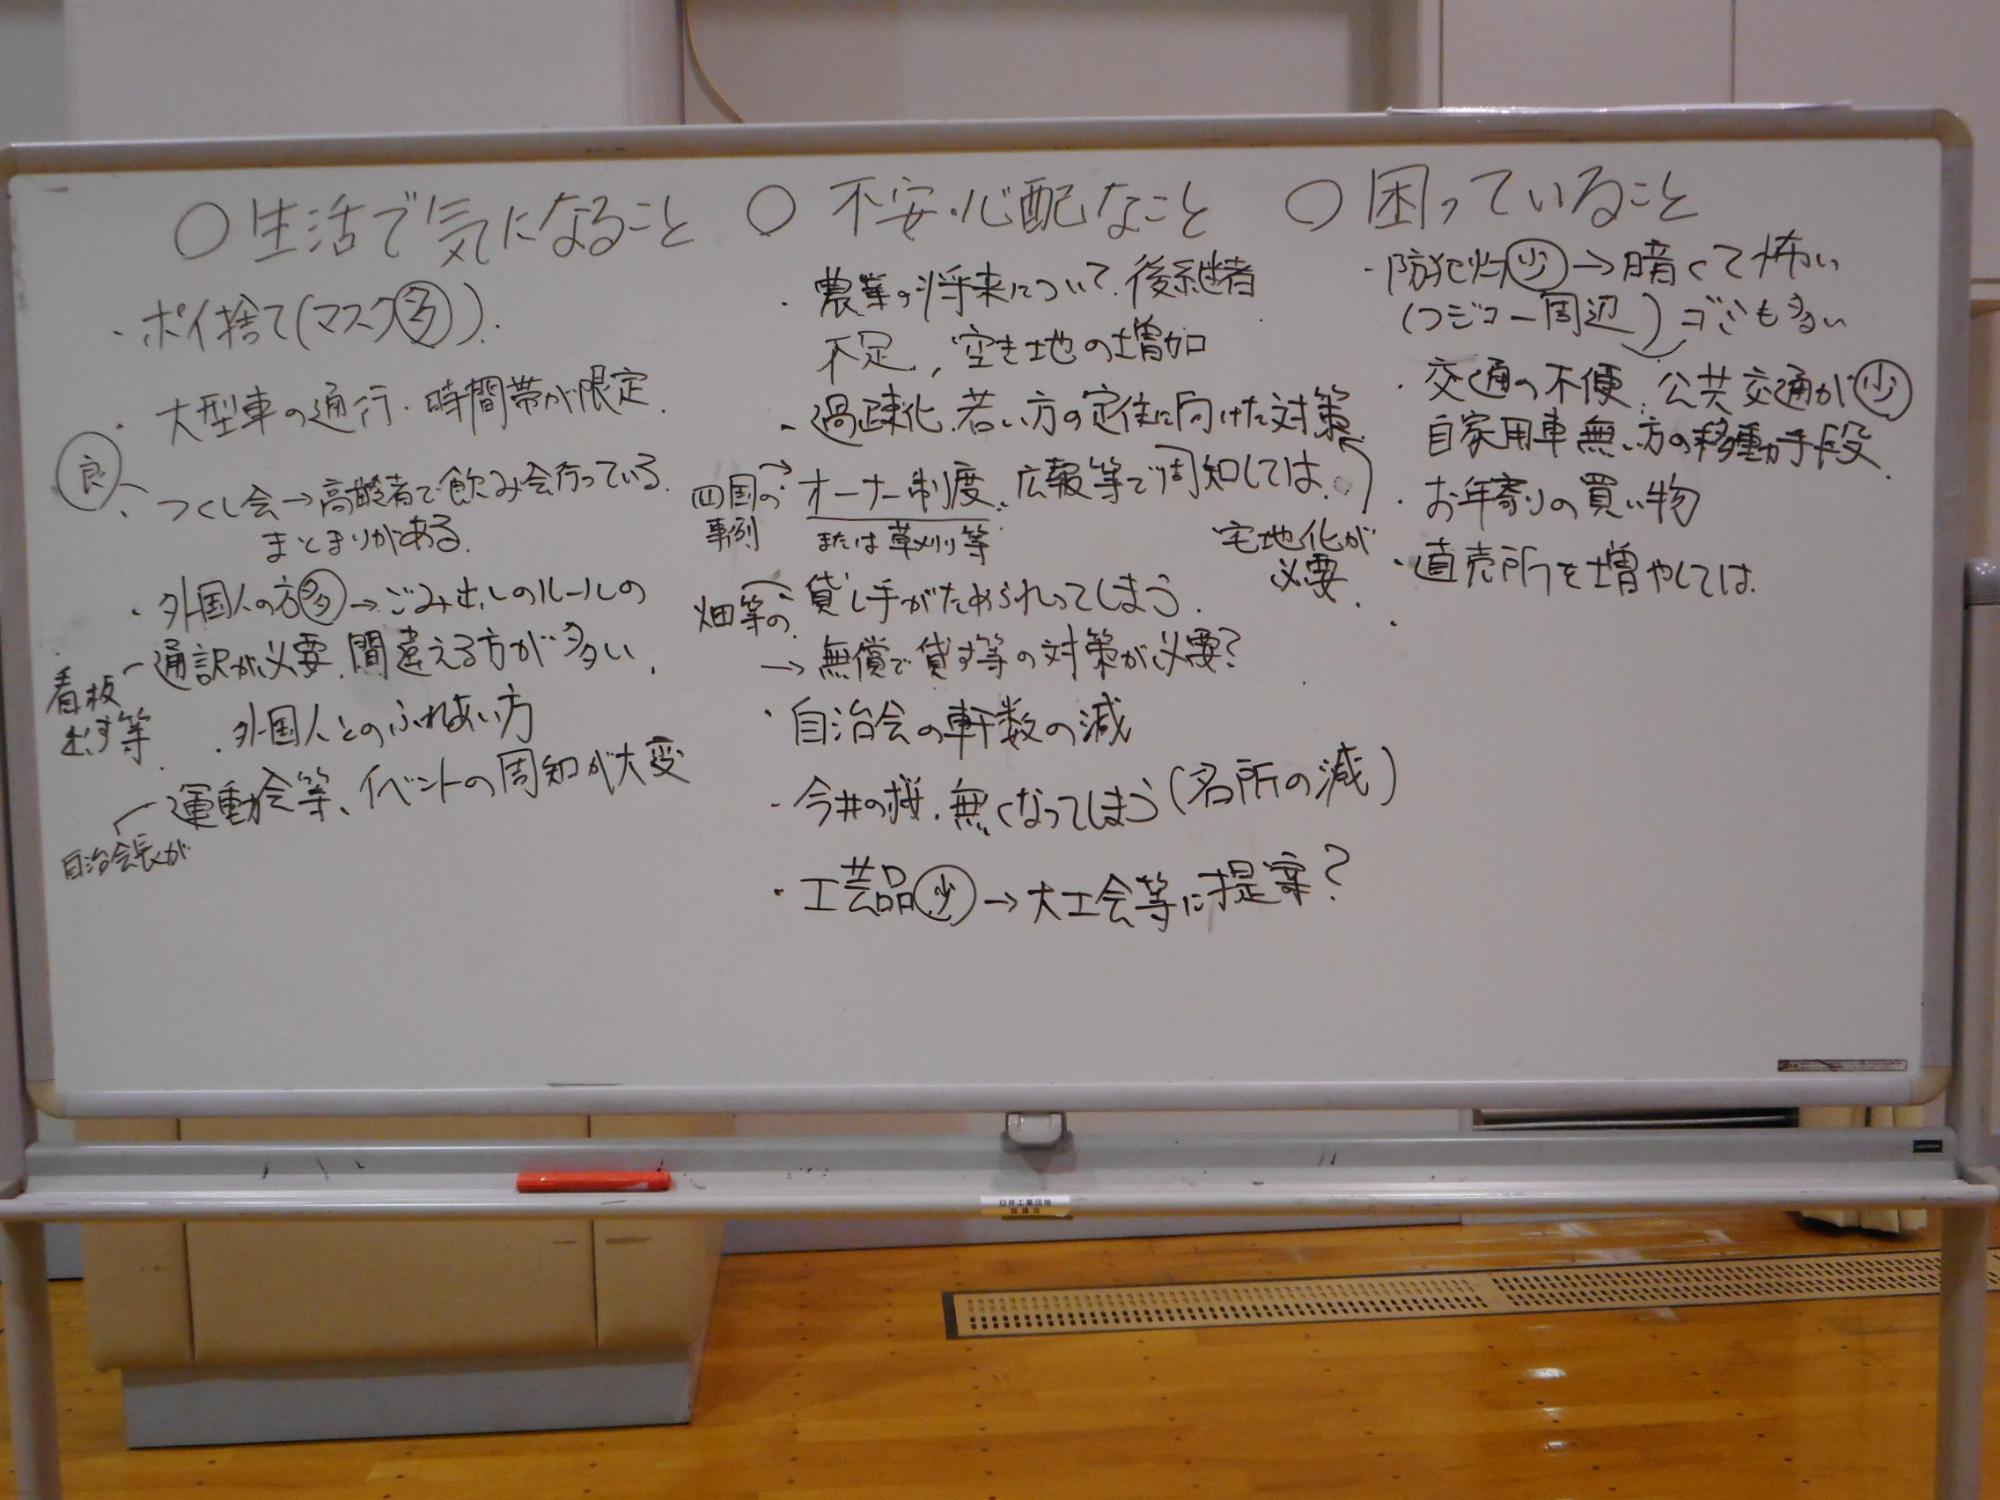 ○生活で気になること
・ポイ捨て(マスク多).
・大型車の通行.時間帯が限定.
良
・つくし会→高齢者で飲み会行っている.
まとまりがある.
・外国人の方多→ごみ出しのルールの
通訳が必要.間違える方が多い.
看板
出す等.
・外国人とのふれあい方
運動会等、イベントの周知が大変
自治会長が
○不安・心配なこと
・農業の将来について.後継者
不足,空き地の増加
・過疎化.若い方の定住に向けた対策.
四国の→オーナー制度.広報等で周知しては.
事例
または草刈り等
宅地化が
必要.
畑等の.貸し手がためられってしまう.
→無償で貸す等の対策が必要?
・自治会の軒数の減
・今井の桜.無くなってしまう(名所の減)
・工芸品少→大工会等に提案?
○困っていること
・防犯灯少→暗くて怖い
(フジコー周辺)ゴミも多い
・交通の不便.公共交通が少
自家用車無い方の移動手段.
・お年寄りの買い物
・直売所を増やしては.
・
白井工業団地
協議会